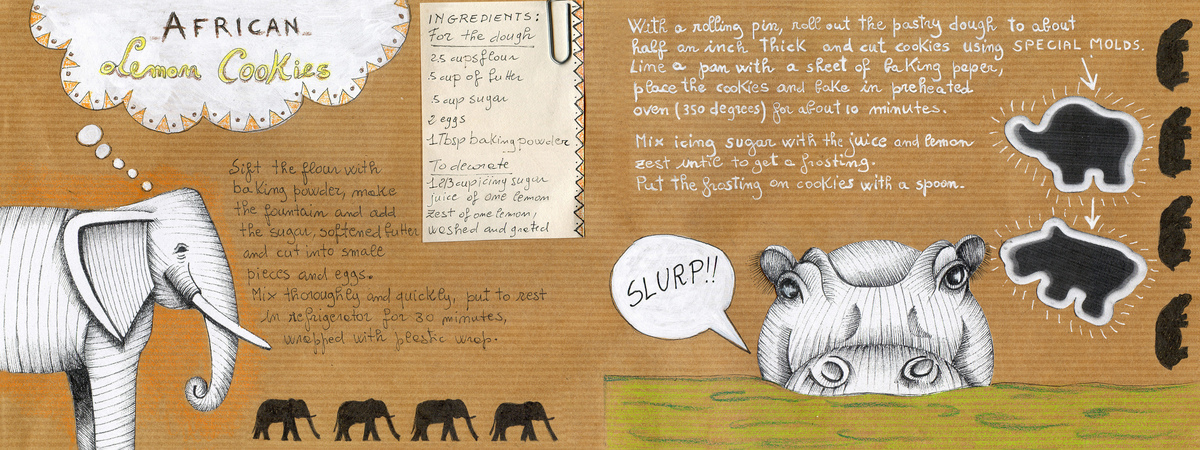 AFRICAN
Lemon Cookies
INGREDIENTS:
For the dough
2.5 cups flour
.5 cup of butter
.5 cup sugar
2 eggs
1 Tbsp baking powder
To decorate
1.2/3 cup icing sugar
juice of one lemon
zest of one lemon,
washed and grated
Sift the flour with
baking powder, make
the fountain and add
the sugar, softened butter
and cut into small
pieces and eggs.
Mix thoroughly and quickly, put to rest
in refrigerator for 30 minutes,
wrapped with plastic wrap.
With a rolling pin, roll out the pastry dough to about
half an inch thick and cut cookies using SPECIAL MOLDS.
Line a pan with a sheet of baking paper,
place the cookies and bake in preheated
oven (350 degrees) for about 10 minutes.
Mix icing sugar with the juice and lemon
zest until to get a frosting.
Put the frosting on cookies with a spoon.
SLURP!!